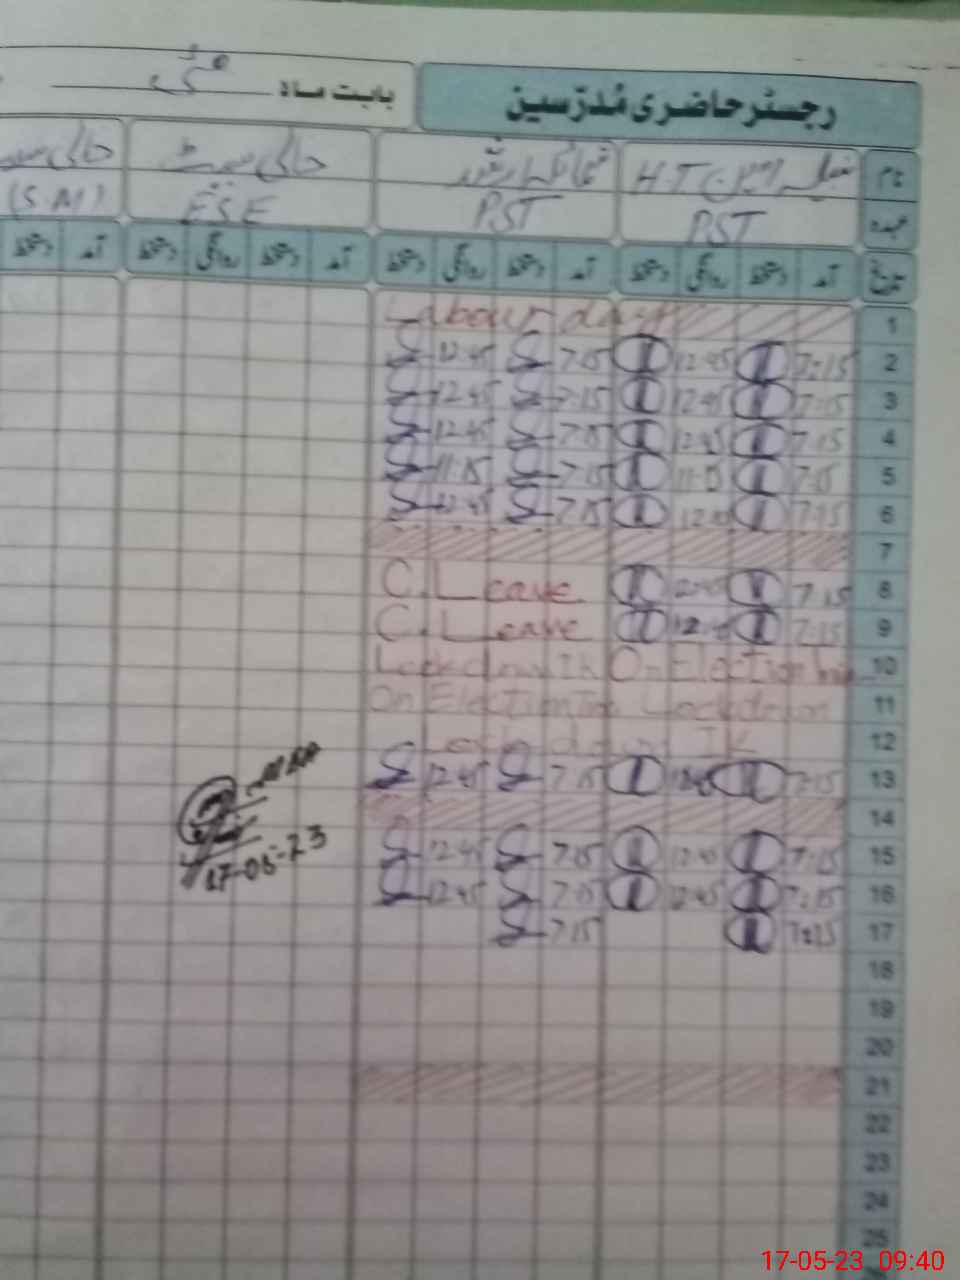 رجسٹر حاضری مُدرّسین
بابت ماہ مئی
نام H.T خالی سیٹ خالی سیٹ
عہدہ PST PST ESE (S.M)
تاریخ آمد دستخط روانگی دستخط آمد دستخط روانگی دستخط آمد دستخط روانگی دستخط آمد دستخط
1 Labour day
2 7:15 12:45 7:15 12:45
3 7:15 12:45 7:15 12:45
4 7:15 12:45 7:15 12:45
5 7:15 11:15 7:15 11:15
6 7:15 7:15 12:45
7
8 7:15 C. Leave
9 7:15 C. Leave
10 Lockdown IK On Election
11 On Election Lockdown
12 Lockdown IK
13 7:15 12:45 7:15 12:45
14
15 7:15 12:45 7:15 12:45
16 7:15 12:45 7:15 12:45
17 7:15 7:15
17-05-23
18
19
20
21
22
23
24
25
17-05-23 09:40